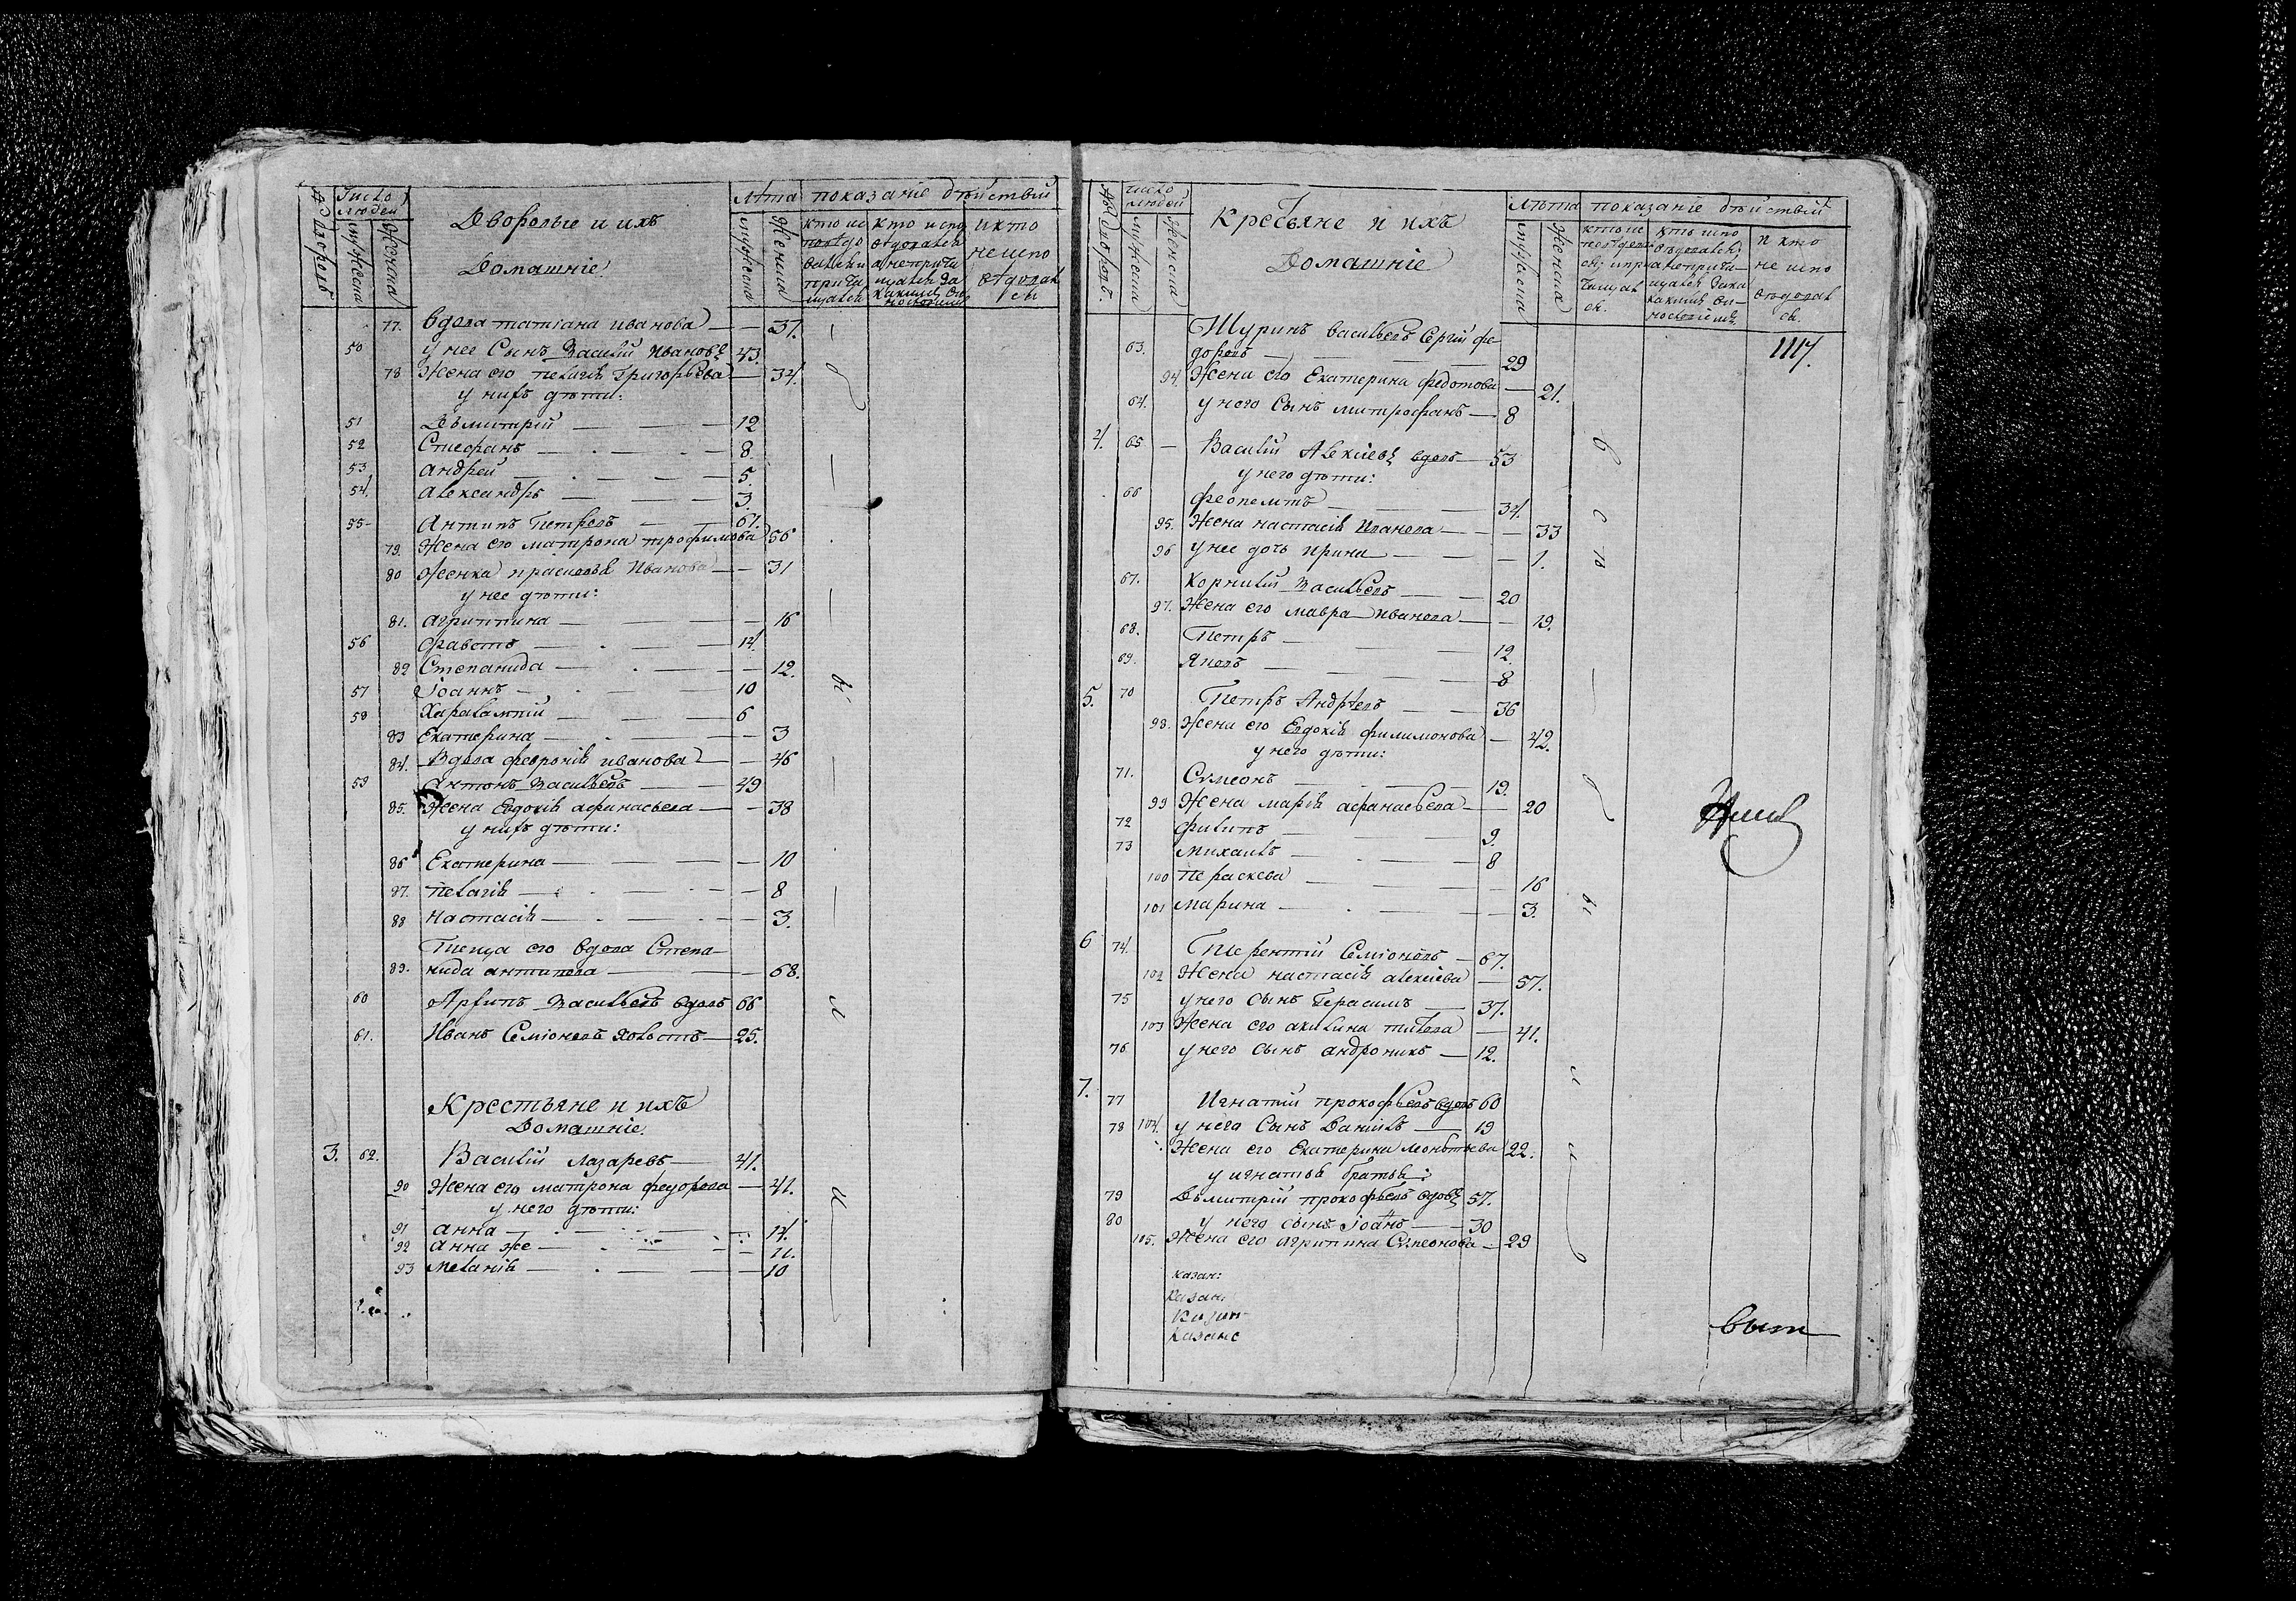 Число людей
лѣта показанiе дѣйствiй
Дворовые и ихъ
Домашнiе
мужеска женска
77. Вдова татiана иванова — 37.
50 у нее Сынъ Василiй Ивановъ 43
78 Жена его пелагiя Григорьева — 34.
у нихъ дѣти:
51 Дьмитрiй — 12
52 Стефанъ — 8
53 Андрей — 5.
54. Александръ — 3.
55 Антипъ Петровъ — 67.
79. Жена его матрона трофимова 56
80 Женка прасковья Иванова — 31
у нее дѣти:
81. Агриппина — 16
56 — 14.
82 Степанида — 12.
57 Iоаннъ — 10
58 Харалампiй — 6
83 Екатерина — 3
84. Вдова феѵронiя иванова — 46
59 Антонъ Васильевъ — 49
85. Жена Евдокiя афанасьева — 38
у нихъ дѣти:
86 Екатерина — 10
87. пелагiя — 8
88 настасiя — 3.
Теща его вдова Степа-
89. нида антипова — 68.
60 Васильевъ вдовъ 66
61. Иванъ Семiоновъ холостъ — 25.
Крестьяне и ихъ
Домашнiе.
3. 62. Василiй лазаревъ — 41.
90 Жена его матрона федорова — 41.
у него дѣти:
91 анна — 14.
92 анна же — 11.
93 меланiя — 10
число людей
Крестьяне и ихъ
Домашнiе
лѣта показанiе дѣйствiй
мужеска женска
1117.
Шуринъ васильевъ Сергiй фе-
63. доровъ — 29
94 Жена его Екатерина федотова — 21.
64. у него Сынъ митрофанъ — 8
4. 65 — Василiй Алексiевъ вдовъ — 53
у него дѣти:
66 феопемтъ — 34.
95. Жена настасiя Иванова — 33
96 у нее дочь ирина — 1.
67. Корнилiй Васильевъ — 20
97. Жена его мавра иванова — 19.
68. Петръ — 12.
69. Яковъ — 8
5. 70 Петръ Андрѣевъ — 36
98. Жена его Евдокiя филимонова — 42.
у него дѣти:
71. Сѵмеонъ — 19.
99 Жена марiя афанасьева — 20
72 филипъ — 9.
73 михаилъ — 8
100 Параскева — 16
101 марина — 3.
6 74. Терентiй Семiоновъ — 67.
102 Жена настасiя алексiева — 57.
75 у него сынъ Герасимъ — 37.
103 Жена его акилина титова — 41.
76 у него сынъ андроникъ — 12.
7. 77 Игнатiй прокофьевъ вдовъ 60
78 104. у него Сынъ Данiилъ — 19
Жена его Екатерина леонтьева 22.
у игнатья братья:
79 Дьмитрiй прокофьевъ вдовъ 57.
80 у него сынъ Iоанъ — 30
105. Жена его агрипина Сѵмеонова — 29
казан:
Казан:
Казан
Казанс